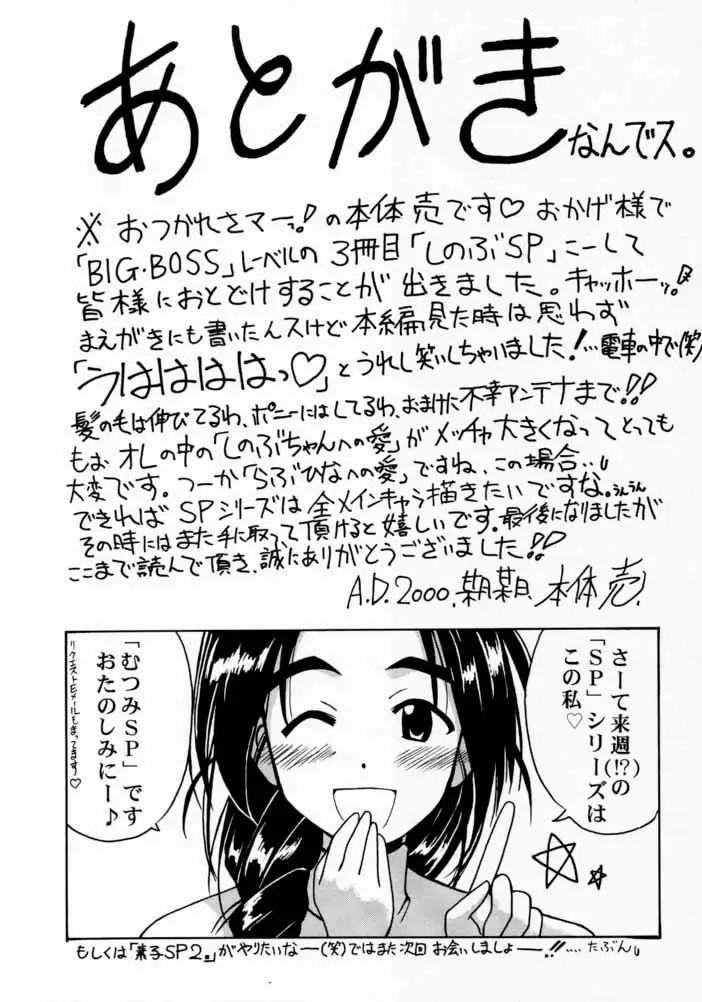 あとがき
なんでス。
※おつかれさマーっ!の本体売です♡おかげ様で
「BIG・BOSS」レーベルの3冊目「しのぶSP」こーして
皆様におとどけすることが出きました。キャッホーッ。
まえがきにも書いたんスけど本編見た時は思わず
「うははははっ♡」とうれし笑いしちゃいました!…電車の中で(笑)
髪の毛は伸びてるわ、ポニーにはしてるわ、おまけに不幸アンテナまで!!
もぉオレの中の「しのぶちゃんへの愛」がメッチャ大きくなってとっても
大変です。つーか「らぶひなへの愛」ですね、この場合…。
できればSPシリーズは全メインキャラ描きたいですな。うんうん
その時にはまた手に取って頂けると嬉しいです。最後になりましたが
ここまで読んで頂き、誠にありがとうございました!!
A.D.2000.某月某日、本体売.
さーて来週(!?)の
「SP」シリーズは
この私♡
「むつみSP」です
おたのしみにー♪
リクエストEメールもまってます♡
もしくは「素子SP2。」がやりたいなー(笑)ではまた次回お会いしましょー!!….たぶん。